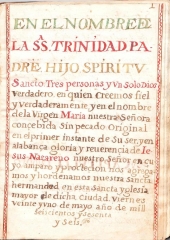 EN EL NOMBRE DE
LA SS. TRINIDAD PA-
DRE HIJO SPIRITV
Sancto Tres personas y Vn Solo Dios
Verdadero en quien Creemos fiel
y verdaderamente, y en el nombre
de la Virgen Maria nuestra Señora
concebida Sin pecado Original
en el primer Instante de Su ser, y en
alabança gloria y reuerencia de Ie-
sus Nazareno nuestro Señor en cu
yo amparo y protecçion nos
mos y hordenamos nuestra Sancta
hermandad en esta Sancta yglesia
mayor de dicha Ciudad. Viernes
veinte y uno de mayo año de mill
Seiscientos y sesenta
y Seis